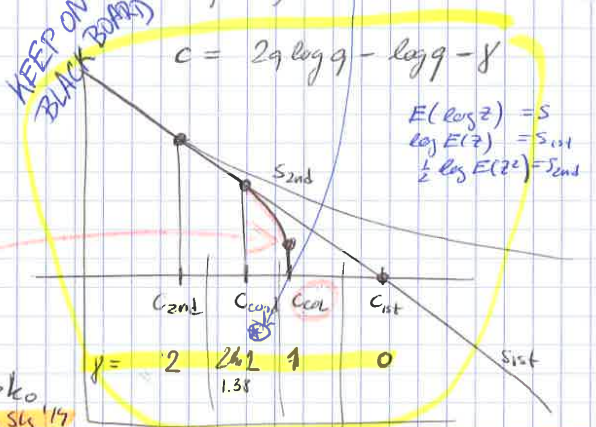 KEEP ON
BLACK BOARD
c = 2q log q - log q - γ
E(log Z) = S
log E(Z) = S1st
½ log E(Z²) = S2nd
S2nd
C2nd Ccond Ccol C1st
γ = 2 2log2 1 0
1.38
S1st